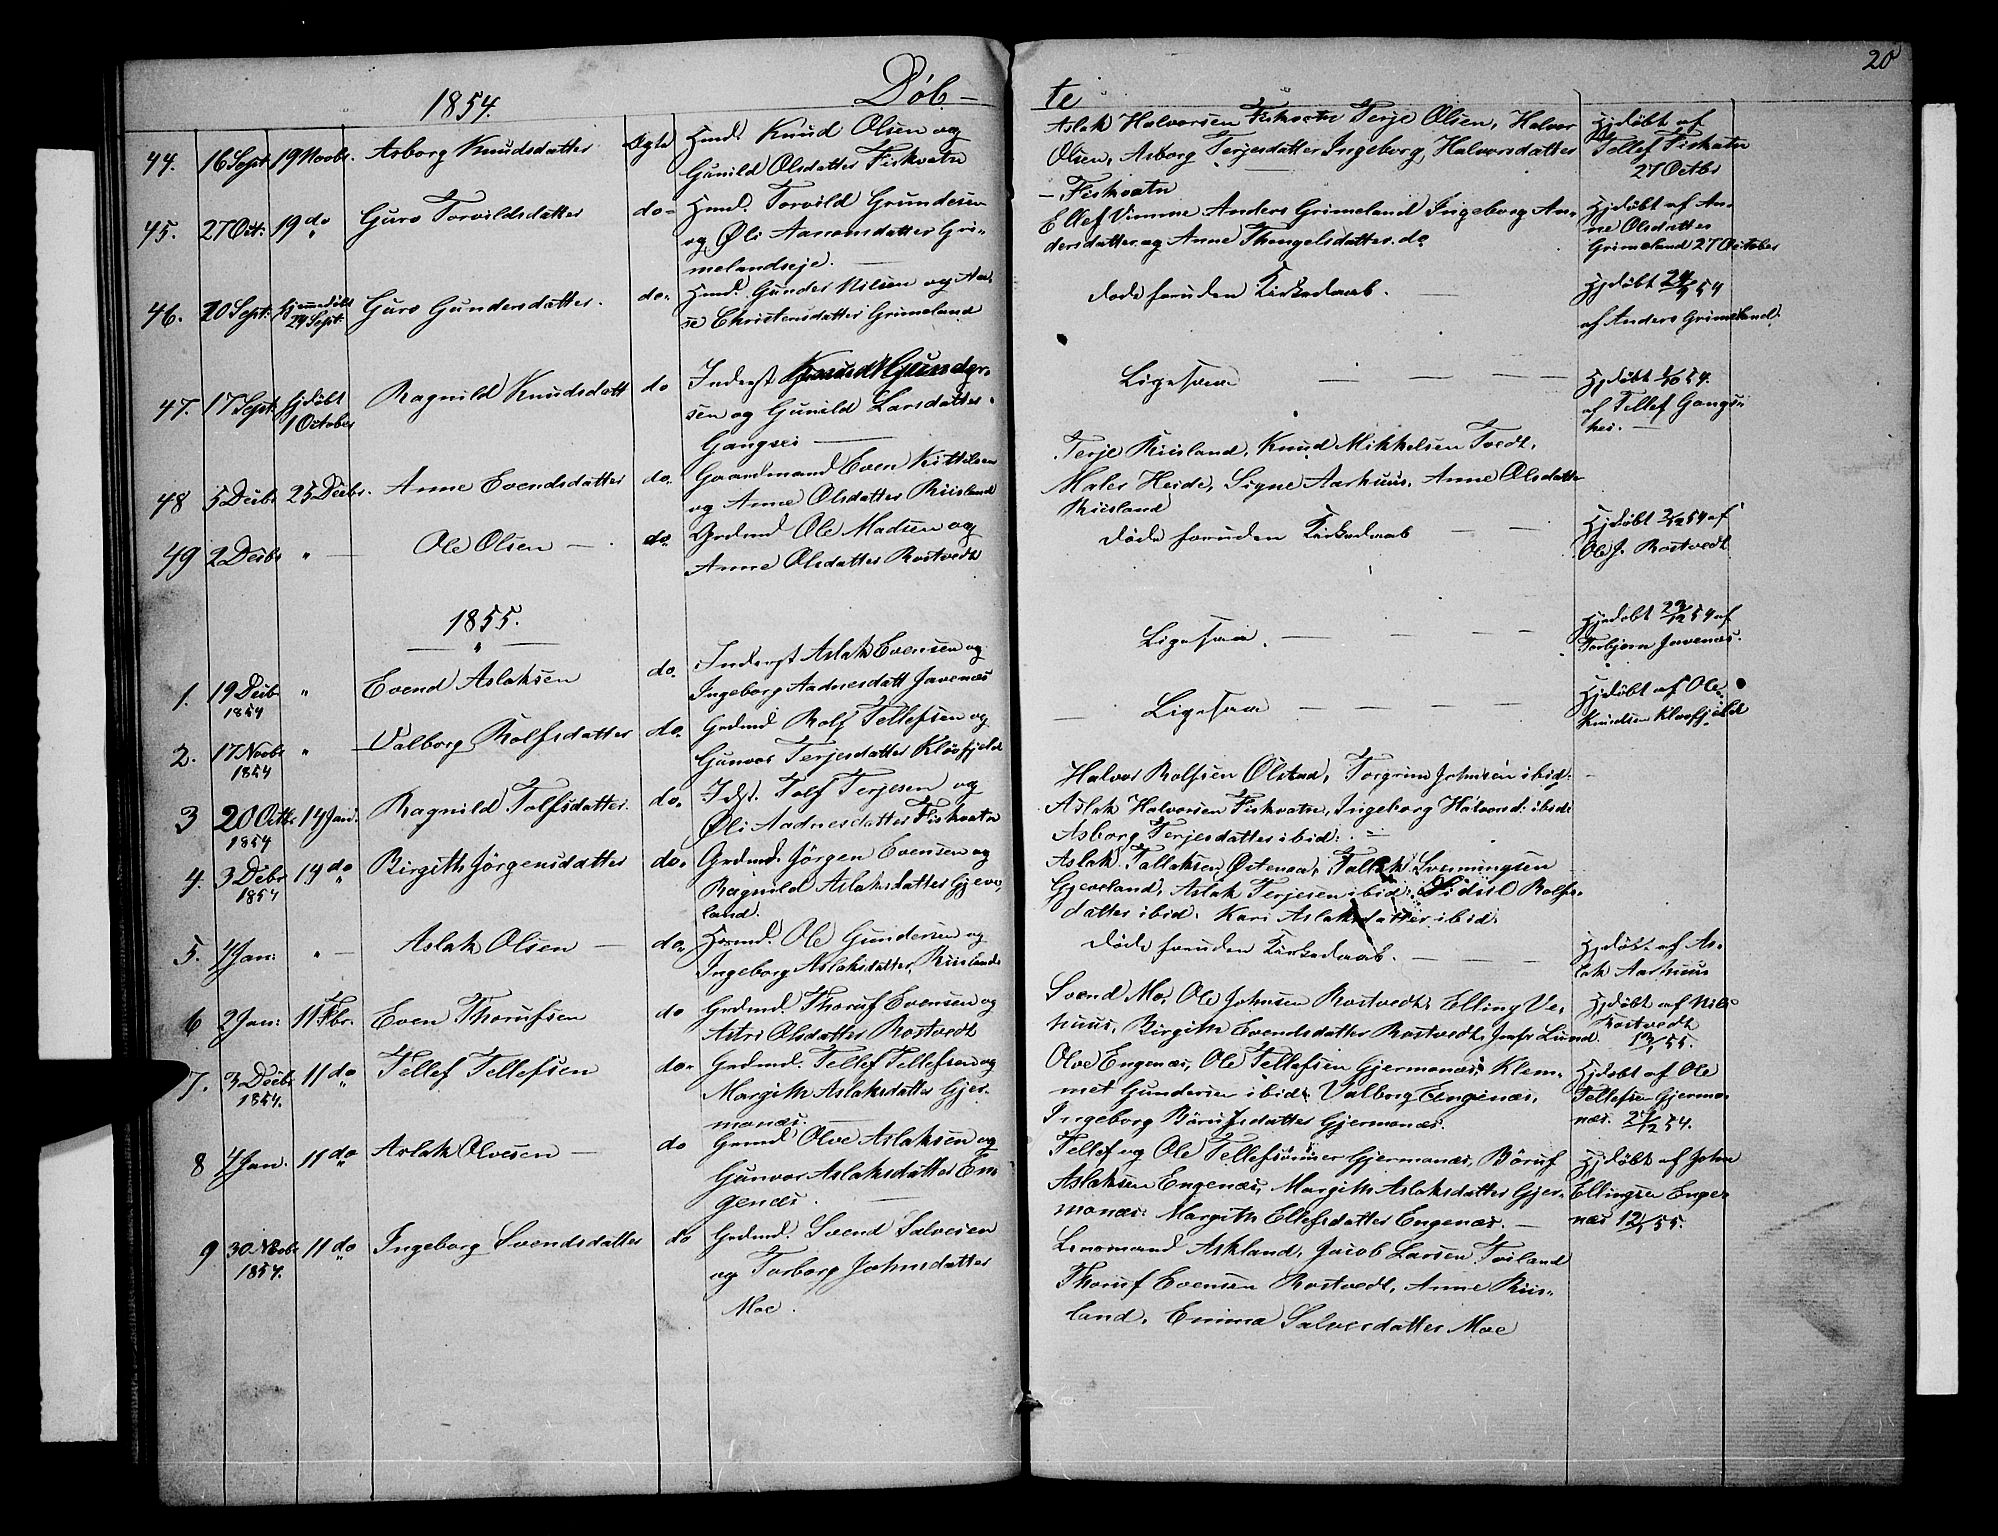 20
Døb-
te
1854.
44. 16 Sept 19 Novbr. Asborg Knudsdatter Ægte Hmd. Knud Olsen og
Gunild Olsdatter Fiskvatn
Aslak Halvorsen Fiskvatn Terje Olsen, Halvor
Olsen, Asborg Terjesdatter Ingeborg Halvorsdatter
- Fiskvatn
Hjdøbt af
Tellef Fiskvatn
27 Octbr
45. 27 Oct: 19 do Guro Torvildsdatter do- Hmd. Torvild Gundersen
og Øli Aanonsdatter Gri-
melandseje.
Ellef Vimme Anders Grimeland Ingeborg An-
dersdatter og Anne Thengelsdatter do
Hjdøbt af An-
ne Olsdatter
Grimeland 27 October
46. 20 Sept: Hjemmedøbt
24 Sept. Guro Gundersdatter. do- Hmd. Gunder Nilsen og Aa-
se Christensdatter Grimeland
døde foruden Kirkedaab.
Hjdøbt 24/9 54
af Anders Grimeland.
47. 17 Sept. Hjdøbt
1 October Ragnild Knudsdatt do Inderst Knud Gunder-
sen og Gunild Larsdatter
Gangsei
Ligesaa
Hjdøbt 1/10 54.
af Tellef Gangs-
hei.
48 5 Decbr. 25 Decbr. Anne Evendsdatter do. Gaardmand Even Kittelsen
og Anne Olsdatter Riisland
Terje Riisland, Knud Mikkelsen Tvedt.
Maler Heide, Signe Aarhuus. Anne Olsdatter
Riisland
49 2 Decbr " Ole Olsen do. Grdmd Ole Madsen og
Anne Olsdatter Rostvedt
døde foruden Kirkedaab
Hjdøbt 3/12 54 af
Ole J. Rostvedt
1855.
1. 19 Decb
1854 " Evend Aslaksen do. Inderst Aslak Evensen og
Ingeborg Aadnesdatt Javenæs
Ligesaa.
Hjdøbt 29/12 54 af
Torbjørn Javenæs.
2. 17 Novbr
1854 " Valborg Rolfsdatter do. Grdmd Rolf Tellefsen og
Gunvor Terjesdatter Kløvfjeld
Ligesaa
Hjdøbt af Ole
Knudsen Kløvfjeld
3 20 Octbr.
1854 14 Jan. Ragnild Tolfsdatter. do. Idst. Tolf Terjesen og
Øli Aadnesdatter Fiskvatn
Halvor Rolfsen Ølstad, Torgrim Johnsen ibid:
Aslak Halvorsen Fiskvatn, Ingeborg Halvorsd: ibid:
Asborg Terjesdatter ibid:
4. 3 Debr
1854 14 do Birgith Jörgensdatter do. Grdmd. Jörgen Evensen og
Ragnild Aslaksdatter Gjeve-
land.
Aslak Tallaksen Østenaa, Tallak Svenningsen
Gjeveland, Aslak Terjesen ibid: Sidsil Rolfs-
datter ibid. Kari Aslaksdatter ibid.
5. 4 Jan: " Aslak Olsen do. Hsmd. Ole Gundersen og
Ingeborg Aslaksdatter, Riisland
døde foruden Kirkedaab.
Hjdøbt af As-
lak Aarhuus
6 2 Jan: 11 Fbr. Even Thorufsen do Grdmd. Thoruf Evensen og
Astri Olsdatter Rostvedt
Svend Mo, Ole Johnsen Rostvedt, Elling Ve-
huus, Birgith Evendsdatter Rostvedt, Jmfr Lund.
Hjdøbt af Nils
Rostvedt
13/1 55.
7. 3 Decbr
1854. 11 do Tellef Tellefsen do. Grdmd. Tellef Tellefsen og
Margith Aslaksdatter Gjer-
monæs.
Olve Engenæs, Ole Tellefsen Gjermonæs, Klem-
met Gundersen ibid: Valborg Engenæs,
Ingeborg Börufsdatter Gjermonæs.
Hjdøbt af Ole
Tellefsen Gjermo-
næs. 21/12 54.
8 4 Jan. 11 do Aslak Olvesen do Grdmd. Olve Aslaksen og
Gunvor Aslaksdatter En-
genæs.
Tellef og Ole Tellefsønner Gjermonæs, Böruf
Aslaksen Engenæs, Margith Aslaksdatter Gjer-
monæs. Margith Ellefsdatter Engenæs.
Hjdøbt af John
Ellingsen Enge-
næs 12/1 55.
9 30 Novbr
1854. 11 do Ingeborg Svendsdatter do Grdmd. Svend Salvesen
og Torborg Johnsdatter
Moe.
Lensmand Askland, Jacob Larsen Toiland
Thoruf Evensen Rostvedt, Anne Riis-
land, Emma Salvesdatter Moe